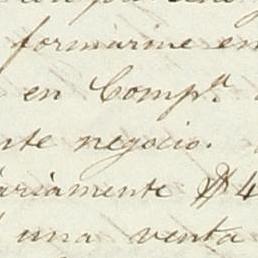 formarme en
en Comp.ª
nte negocio.
ariamente $ 4
una venta